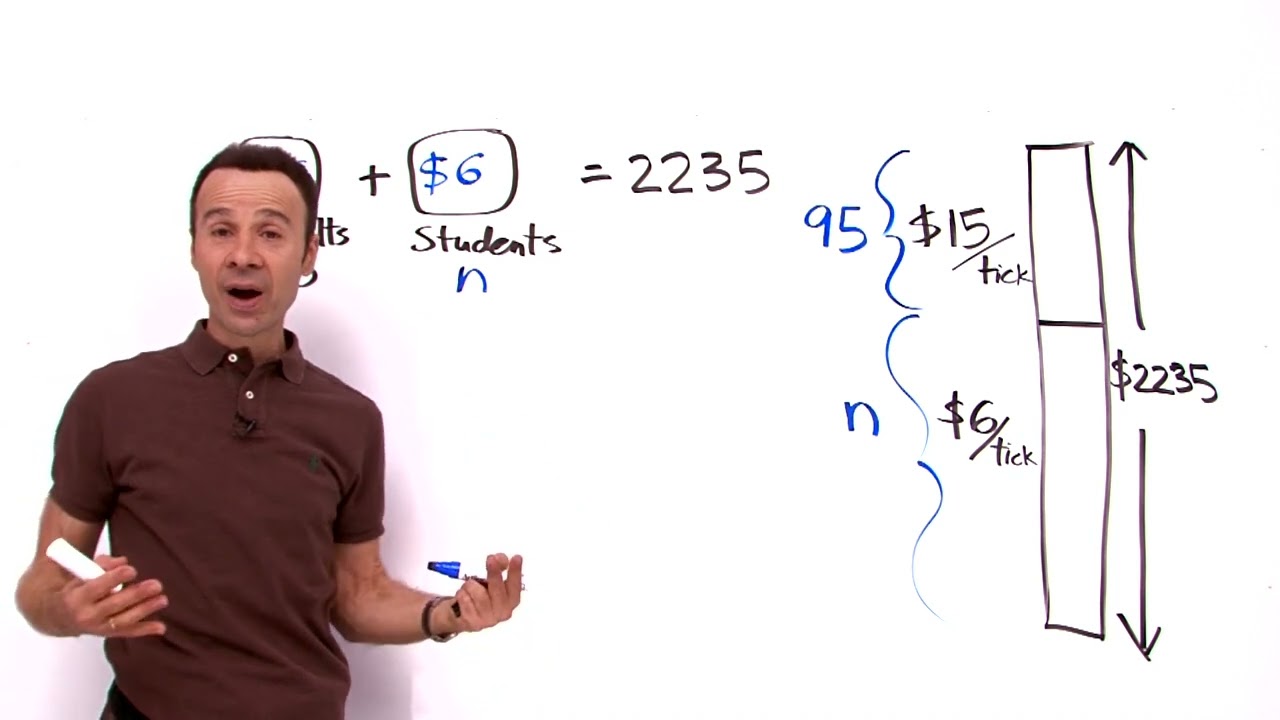 + $6 = 2235
Students
n
95 $15/tick
n $6/tick
$2235